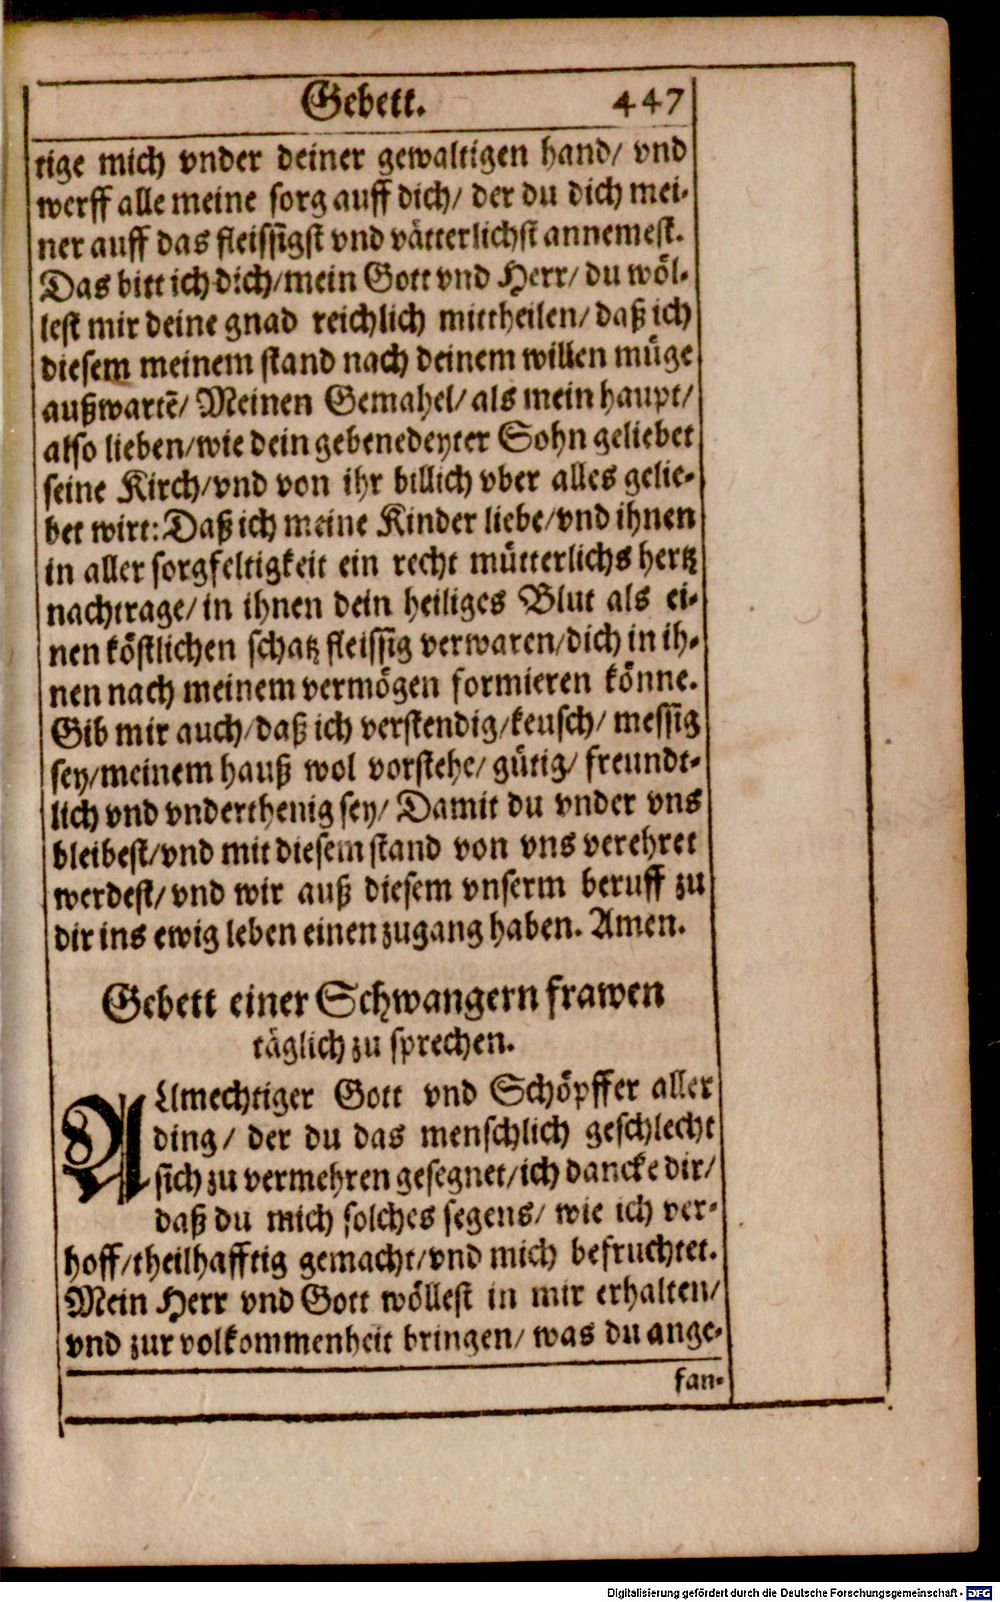 Gebett. 447
tige mich vnder deiner gewaltigen hand/ vnd
werff alle meine sorg auff dich/ der du dich mei-
ner auff das fleissigst vnd vätterlichst annemest.
Das bitt ich dich/mein Gott vnd Herr/ du wöl-
lest mir deine gnad reichlich mittheilen/ daß ich
diesem meinem stand nach deinem willen müge
außwartẽ/ Meinen Gemahel/ als mein haupt/
also lieben/wie dein gebenedeyter Sohn geliebet
seine Kirch/vnd von ihr billich vber alles gelie-
bet wirt: Daß ich meine Kinder liebe/vnd ihnen
in aller sorgfeltigkeit ein recht mütterlichs hertz
nachtrage/in ihnen dein heiliges Blut als ei-
nen köstlichen schatz fleissig verwaren/dich in ih-
nen nach meinem vermögen formieren könne.
Gib mir auch/daß ich verstendig/keusch/ messig
sey/meinem hauß wol vorstehe/ gütig/ freundt-
lich vnd vnderthenig sey/ Damit du vnder vns
bleibest/vnd mit diesem stand von vns verehret
werdest/ vnd wir auß diesem vnserm beruff zu
dir ins ewig leben einen zugang haben. Amen.
Gebett einer Schwangern frawen
täglich zu sprechen.
ALlmechtiger Gott vnd Schöpffer aller
ding/ der du das menschlich geschlecht
sich zu vermehren gesegnet/ich dancke dir/
daß du mich solches segens/ wie ich ver-
hoff/theilhafftig gemacht/vnd mich befruchtet.
Mein Herr vnd Gott wöllest in mir erhalten/
vnd zur volkommenheit bringen/ was du ange-
fan-
Digitalisierung gefördert durch die Deutsche Forschungsgemeinschaft - DFG